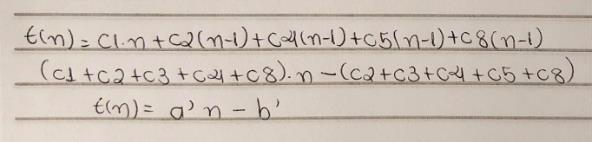 t(n) = c1.n + c2(n-1) + c4(n-1) + c5(n-1) + c8(n-1)
(c1 + c2 + c3 + c4 + c8).n - (c2 + c3 + c4 + c5 + c8)
t(n) = a' n - b'